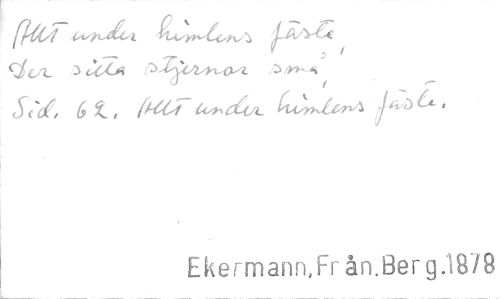 Allt under himlens fäste,
Der sitta stjernor små,
Sid. 62. Allt under himlens fäste.
Ekermann, Från.Berg.1878